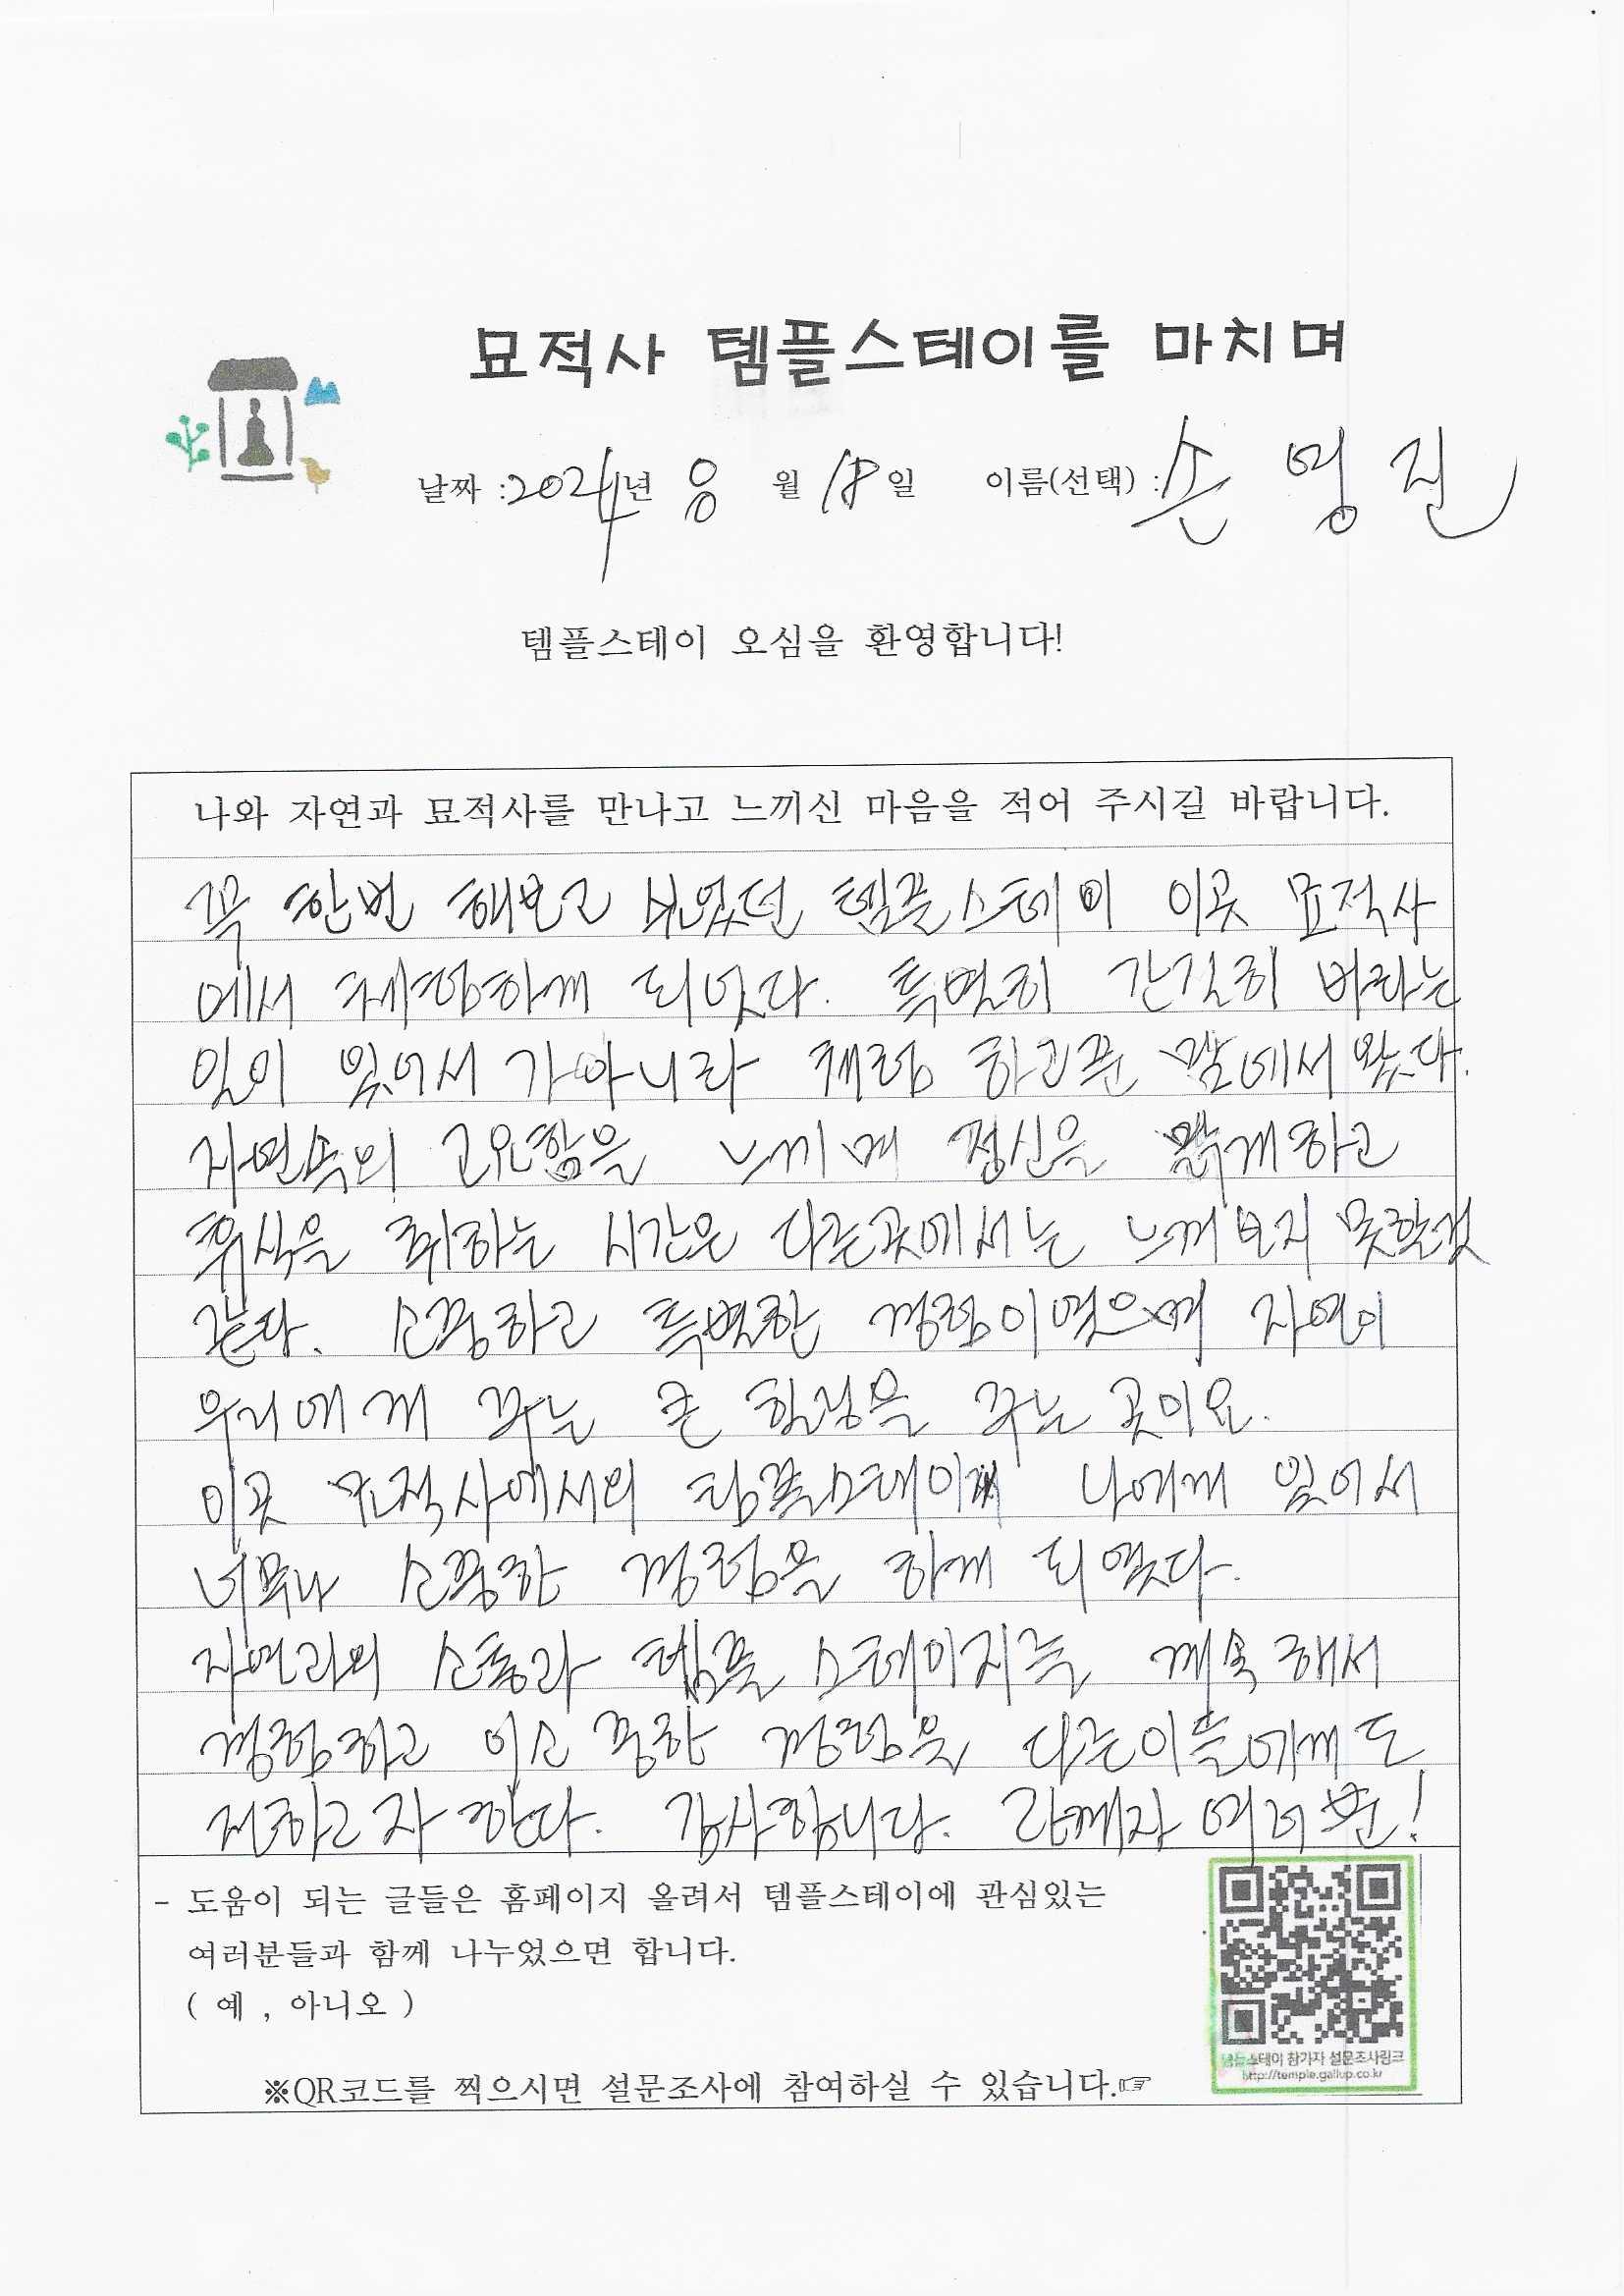 묘적사 템플스테이를 마치며
날짜 :2024년 8 월 18일 이름(선택) :손영진
템플스테이 오심을 환영합니다!
나와 자연과 묘적사를 만나고 느끼신 마음을 적어 주시길 바랍니다.
꼭 한번 해보고 싶었던 템플스테이 이곳 묘적사
에서 체험하게 되엇다. 특별히 간절히 바라는
일이 있어서 가 아니라 체험 하고픈 맘에서 왔다.
자연속의 고요함을 느끼며 정신을 맑게하고
휴식을 취하는 시간은 다른곳에서는 느껴보지 못할것
같다. 소중하고 특별한 경험이였으며 자연이
우리에게 주는 큰 힐링을 주는 곳이요.
이곳 묘적사에서의 템플스테이 나에게 있어서
너무나 소중한 경험을 하게 되였다.
자연과의 소통과 템플 스테이지를 계속해서
경험하고 이소중한 경험을 다른이들에게도
전하고자 한다. 감사합니다. 관계자 여러분!
- 도움이 되는 글들은 홈페이지 올려서 템플스테이에 관심있는
여러분들과 함께 나누었으면 합니다.
( 예 , 아니오 )
템플스테이 참가자 설문조사링크
http://temple.gallup.co.kr
※QR코드를 찍으시면 설문조사에 참여하실 수 있습니다.☞